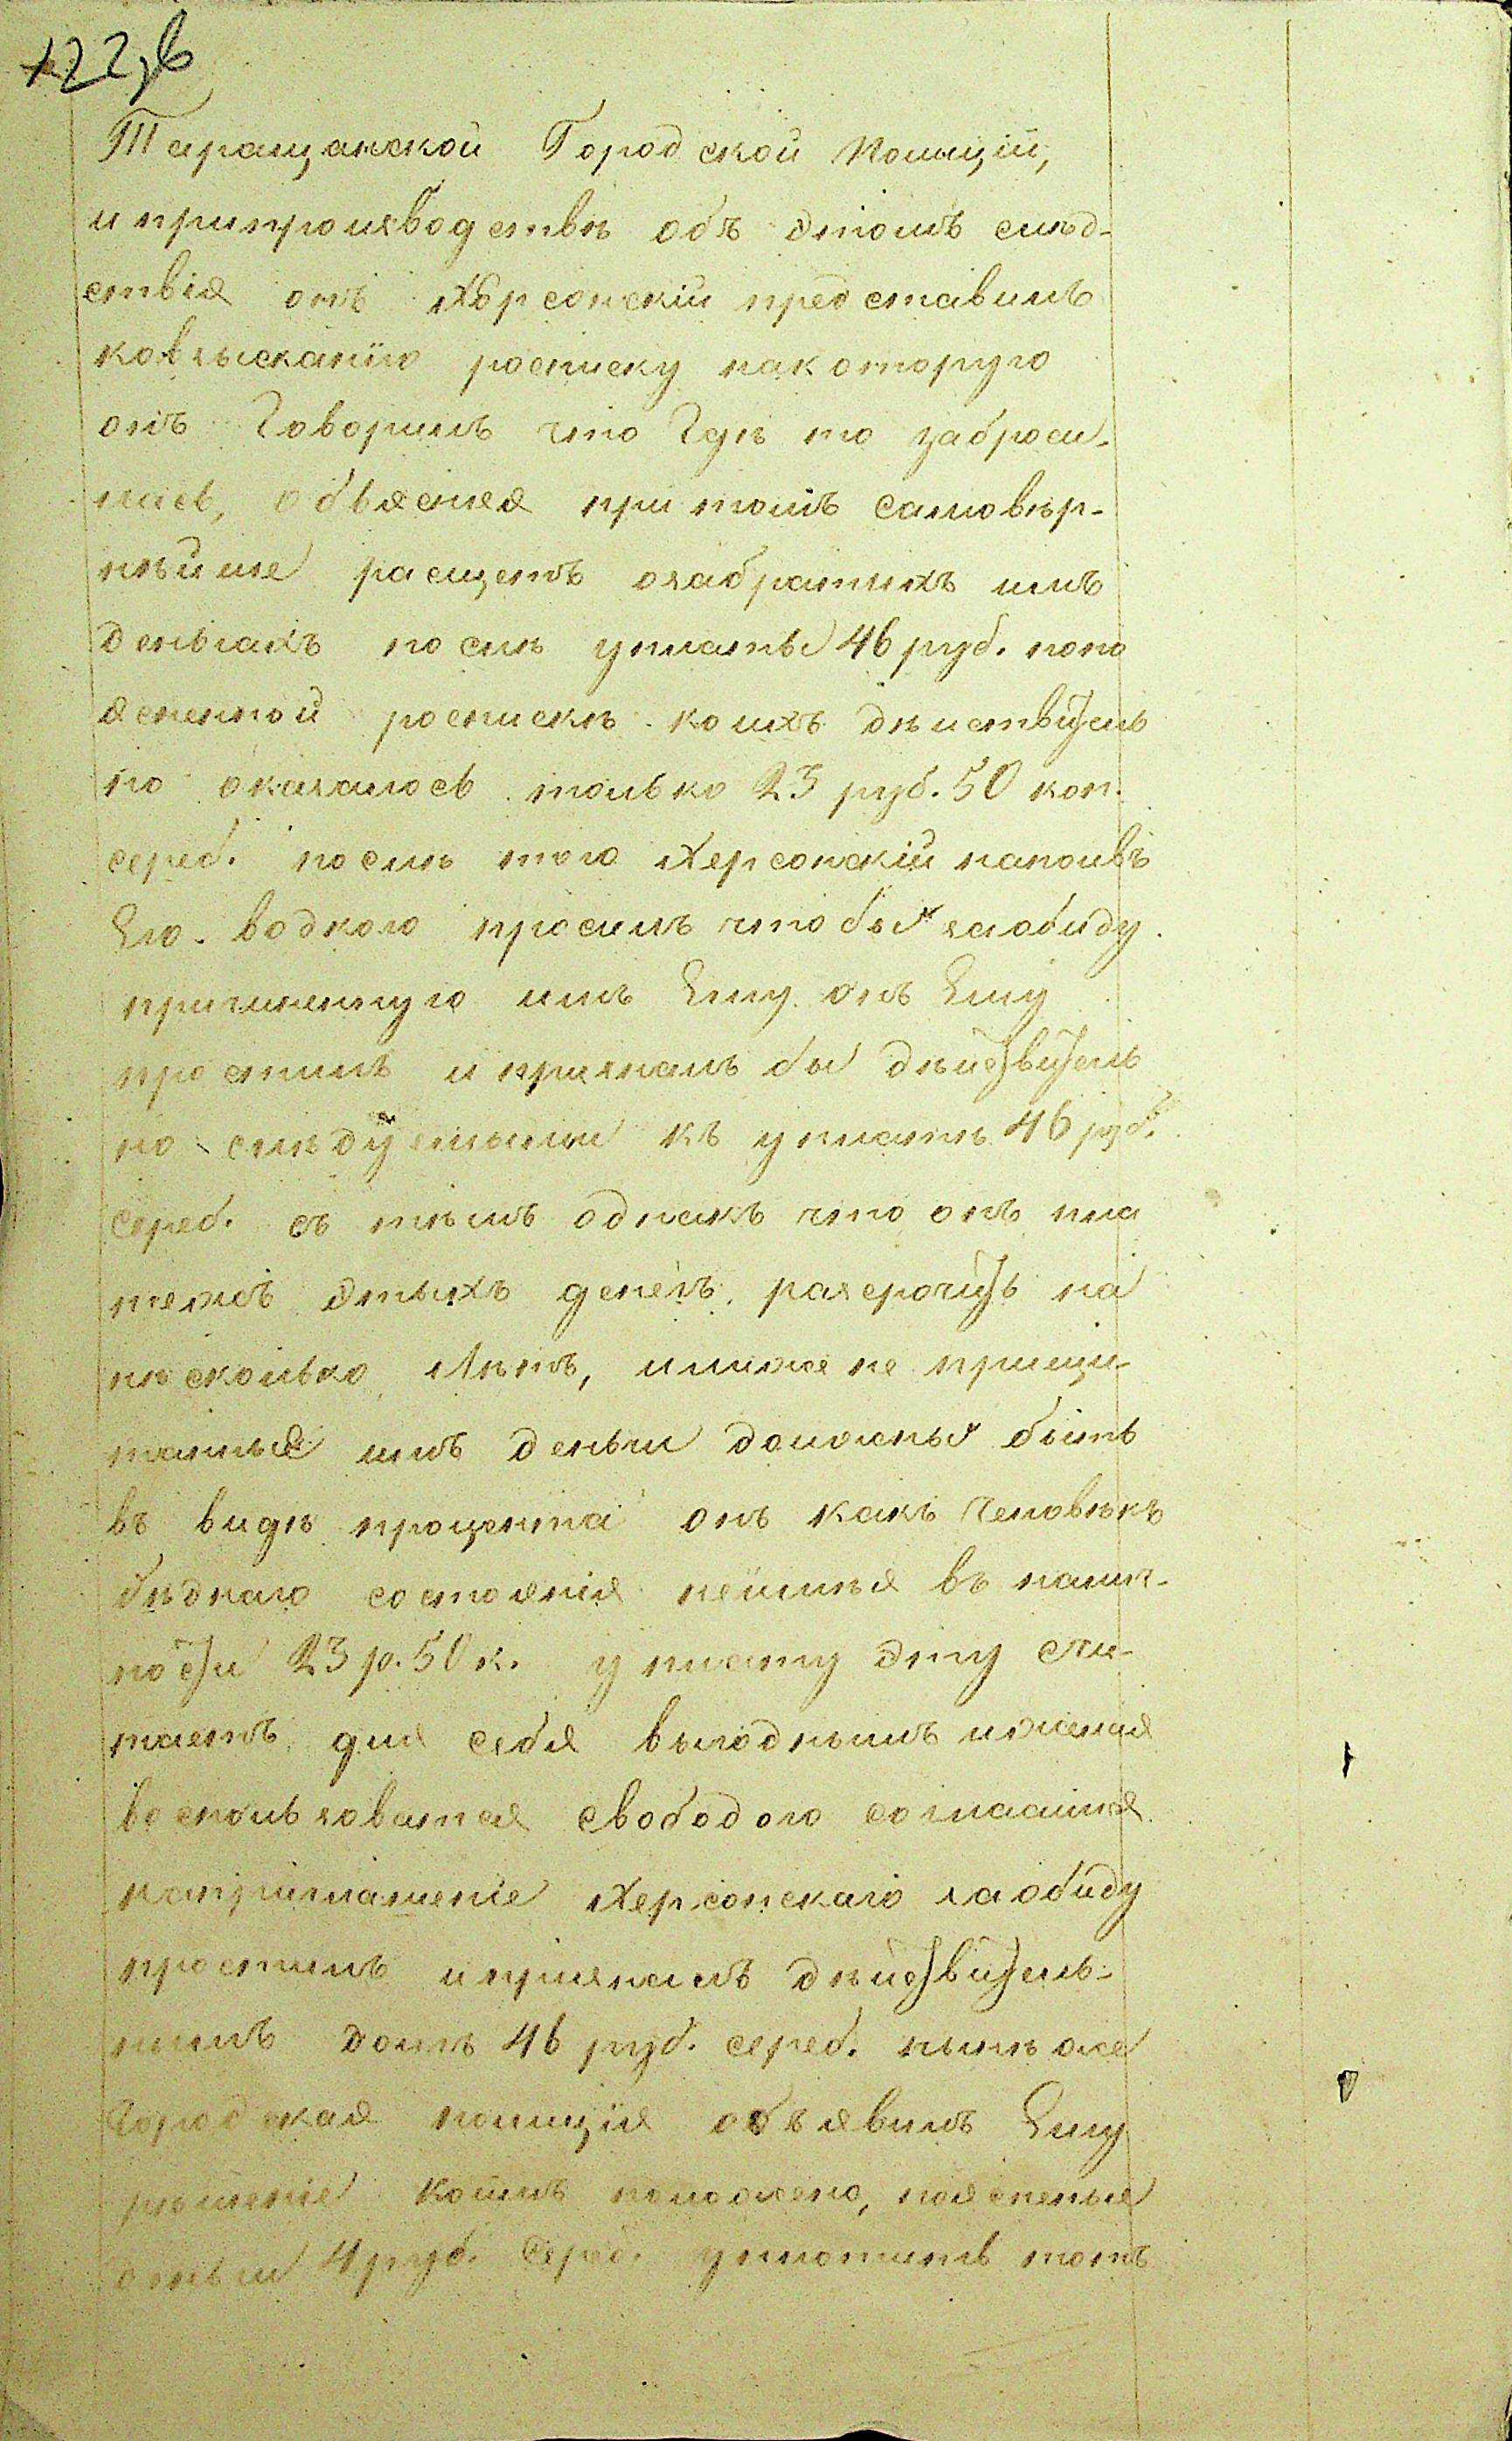 122,в
Таращанской Городской Полиціи,
и припроизводствѣ объ этомъ слѣд-
ствія онъ Херсонскій представилъ
ковзысканію росписку накоторую
онъ Говорилъ что Гдѣ то заброси-
лась, объясняя притомъ самовѣр-
нѣйше расщетъ озабратыхъ имъ
деньгахъ послѣ уплаты 46 руб. попо
ясненной роспискѣ коихъ дѣиствитель
но оказалось только 23 руб. 50 коп.
сереб. послѣ того Херсонскій напоивъ
Его водкою просилъ чтобы заобиду
причиненную имъ Ему онъ Ему
простилъ и призналъ бы дѣйствитель
но слѣдуемыми къ уплатѣ 46 руб.
сереб. съ тѣмъ однакъ что онъ пла
тежъ этыхъ денегъ разсрочитъ на
нѣсколько Лѣтъ, илиже не прищи-
танныя имъ деньги должны быть
въ видѣ процента онъ какъ Человѣкъ
бѣднаго состоянія неимѣя въ налич-
ности 23 р. 50 к. уплату эту счи-
таетъ для себя выгоднымъ ижелая
воспользоватся свободою согласился
наприглашеніе Херсонскаго заобиду
простилъ ипризналъ дѣйствитель-
нымъ долгъ 46 руб. сереб. нынѣже
Городская полиція объявилъ Ему
рѣшеніе Коимъ положено, поясненые
отыи 4 руб. Сереб. уплотить тотъ